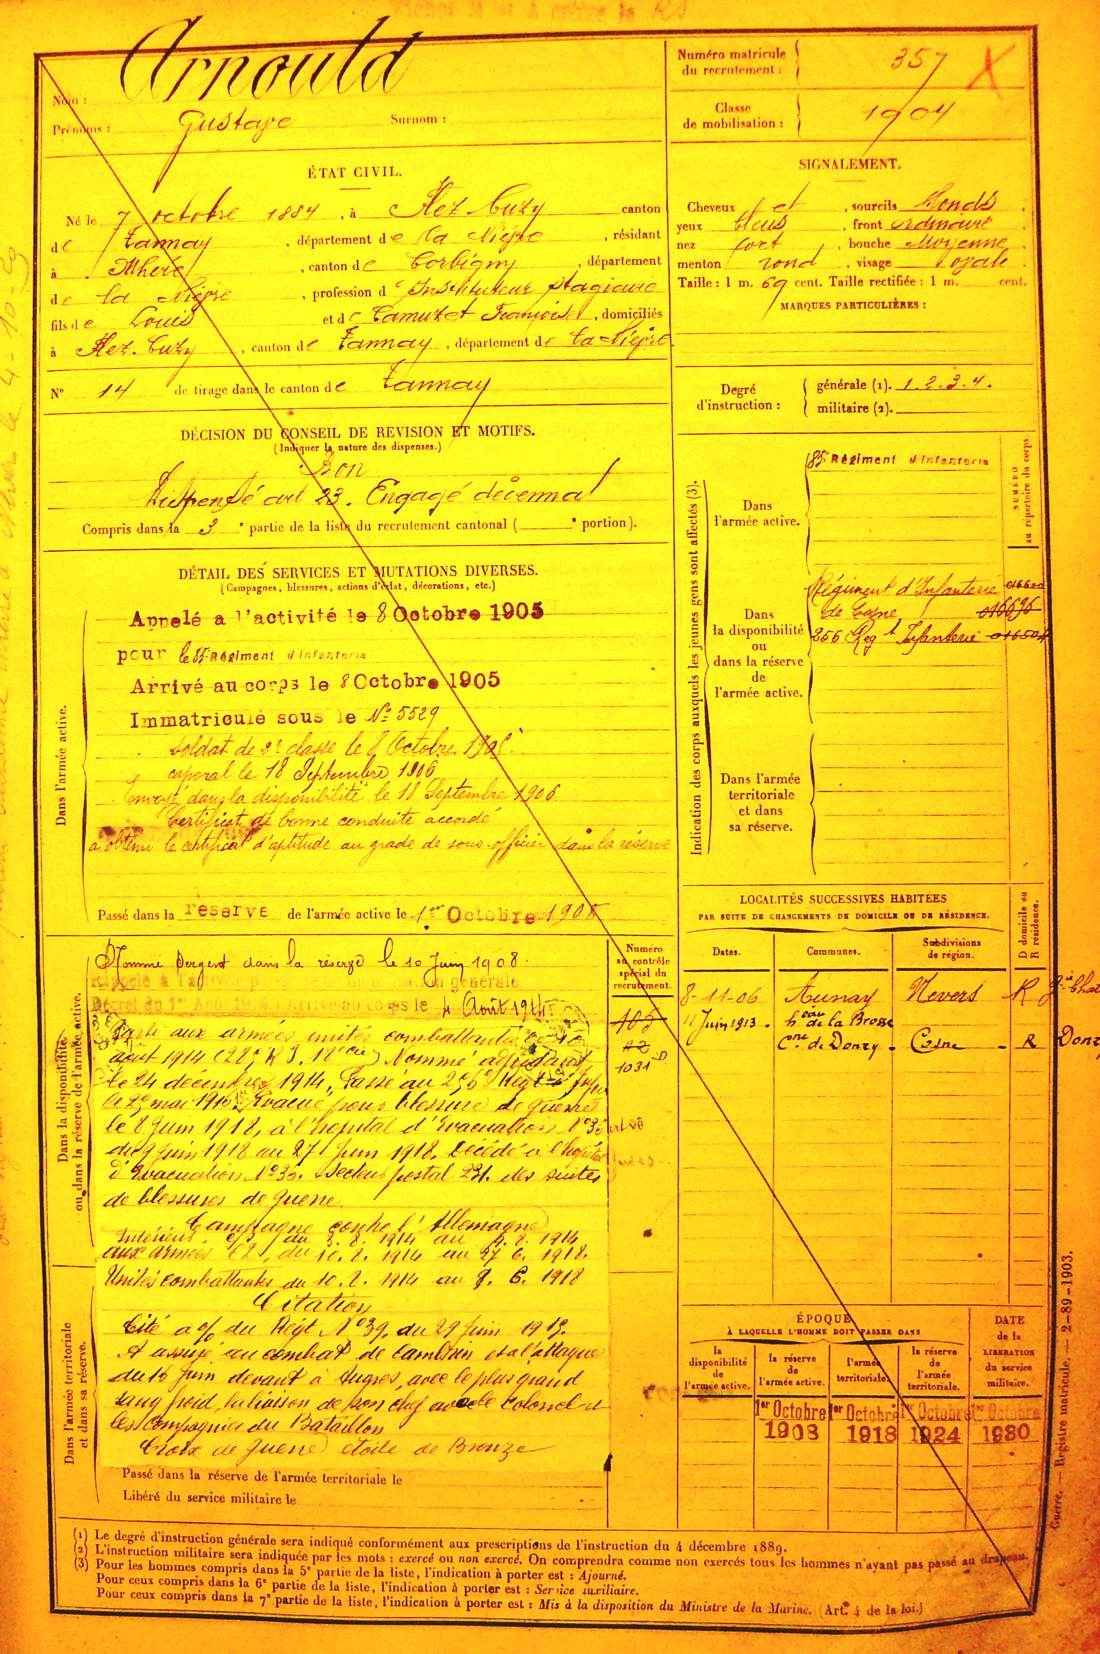 Arnould
Nom :
Prénoms : Gustave Surnom :
Numéro matricule du recrutement : 357
Classe de mobilisation : 1904
ÉTAT CIVIL.
Né le 7 octobre 1884, à Flez Cuzy canton
de Tannay, département de la Nièvre, résidant
à Athée, canton de Corbigny, département
de la Nièvre, profession d'Instituteur stagiaire
fils de Louis et de Camuzat Françoise, domiciliés
à Flez-Cuzy, canton de Tannay, département de la Nièvre.
N° 14 de tirage dans le canton de Tannay
SIGNALEMENT.
Cheveux et, sourcils blonds
yeux bleus, front ordinaire
nez fort, bouche Moyenne
menton rond, visage ovale
Taille : 1 m. 69 cent. Taille rectifiée : 1 m. cent.
MARQUES PARTICULIÈRES :
Degré d'instruction :
générale (1). 1.2.3.4.
militaire (2).
DÉCISION DU CONSEIL DE REVISION ET MOTIFS.
(Indiquer la nature des dispenses.)
Bon
Dispensé art 23. Engagé décennal
Compris dans la 3e partie de la liste du recrutement cantonal ( e portion).
DÉTAIL DES SERVICES ET MUTATIONS DIVERSES.
(Campagnes, blessures, actions d'éclat, décorations, etc.)
Dans l'armée active.
Appelé a l'activité le 8 Octobre 1905
pour le 85e Régiment d'Infanterie
Arrivé au corps le 8 Octobre 1905
Immatriculé sous le N° 5529
Soldat de 2e classe le 8 Octobre 1905.
caporal le 18 Septembre 1906
Envoyé dans la disponibilité le 18 Septembre 1906
Certificat de bonne conduite accordé
a obtenu le certificat d'aptitude au grade de sous-officier dans la réserve
Passé dans la réserve de l'armée active le 1er Octobre 1908
Indication des corps auxquels les jeunes gens sont affectés (3).
NUMÉRO au répertoire du corps.
Dans l'armée active.
85e Régiment d'Infanterie
Dans la disponibilité ou dans la réserve de l'armée active.
Régiment d'Infanterie
de Cosne 016696
256 Reg t Infanterie
Dans l'armée territoriale et dans sa réserve.
LOCALITÉS SUCCESSIVES HABITÉES
PAR SUITE DE CHANGEMENTS DE DOMICILE OU DE RÉSIDENCE.
D domicile ou R résidence.
Dates. Communes. Subdivisions de région.
8-11-06 Aunay Nevers R
11 Juin 1913. heau de la Brosse
Cne de Donzy - Cosne - R Donzy
Dans la disponibilité ou dans la réserve de l'armée active.
Numéro au contrôle spécial du recrutement.
105
42
1031
Nommé Sergent dans la réserve le 10 Juin 1908.
Décret du 1er Août 1914. Arrivé au corps le 4 Août 1914
Parti aux armées unités combattantes le 10
août 1914 Nommé adjudant
le 24 décembre 1914, Passé au 256e Regt
le 29 mai 1916. Evacué pour blessure de guerre
le 8 Juin 1918, à l'hôpital d'Evacuation N° 30
du 9 juin 1918 au 27 Juin 1918. Décédé à l'hopital
d'Evacuation N° 30. Secteur postal 231. des suites
de blessures de guerre
Campagne contre l'Allemagne
Intérieur. du 3.8.1914 au 9.8.1914
aux armées du 10.8.1914 au 27.6.1918.
Unités combattantes du 10.8.1914 au 8.6.1918
Citation
Cité a o/ du Régt N° 39. du 29 Juin 1915.
A assuré au combat de et à l'attaque
du 16 Juin devant Angres, avec le plus grand
sang froid, la liaison de son chef avec le Colonel et
les Compagnies du Bataillon
Croix de guerre étoile de Bronze
Dans l'armée territoriale et dans sa réserve.
Passé dans la réserve de l'armée territoriale le
Libéré du service militaire le
ÉPOQUE
À LAQUELLE L'HOMME DOIT PASSER DANS
DATE de la LIBÉRATION du service militaire.
la disponibilité de l'armée active.
la réserve de l'armée active.
l'armée territoriale.
la réserve de l'armée territoriale.
1er Octobre 1908
1er Octobre 1918
1er Octobre 1924
1er Octobre 1930
Guerre. — Registre matricule. — 2-89-1903.
(1) Le degré d'instruction générale sera indiqué conformément aux prescriptions de l'instruction du 4 décembre 1889.
(2) L'instruction militaire sera indiquée par les mots : exercé ou non exercé. On comprendra comme non exercés tous les hommes n'ayant pas passé au drapeau.
(3) Pour les hommes compris dans la 5e partie de la liste, l'indication à porter est : Ajourné.
Pour ceux compris dans la 6e partie de la liste, l'indication à porter est : Service auxiliaire.
Pour ceux compris dans la 7e partie de la liste, l'indication à porter est : Mis à la disposition du Ministre de la Marine. (Art. 4 de la loi.)